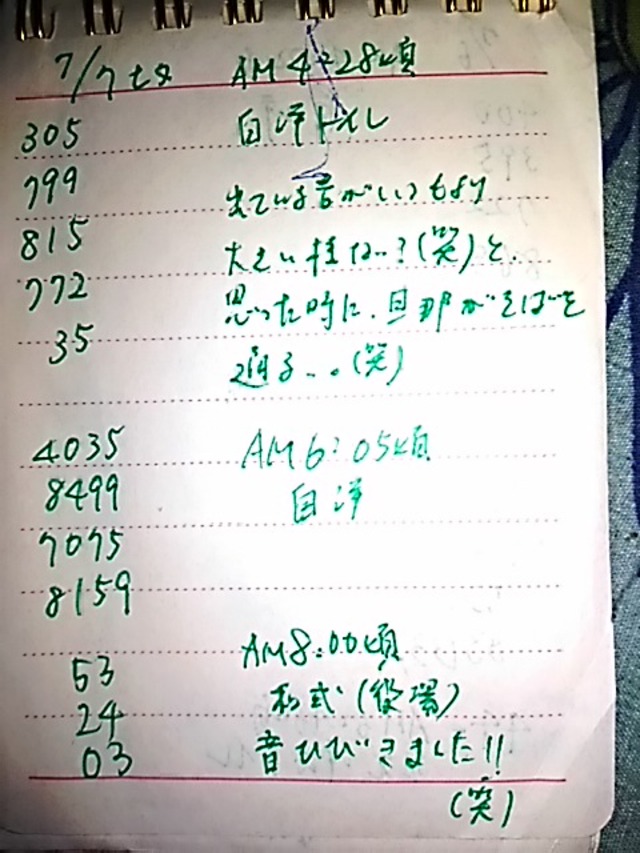 7/7 七夕 AM 4:28頃
305 自宅トイレ
799 出ている音がいつもより
815 大きい様な…?(笑)と、
772 思った時に、旦那がそばを
35 通る…(笑)
4035 AM 6:05頃
8499 自宅
7075
8159
AM 8:00頃
53 和式(役場)
24 音ひびきました!!
03 (笑)